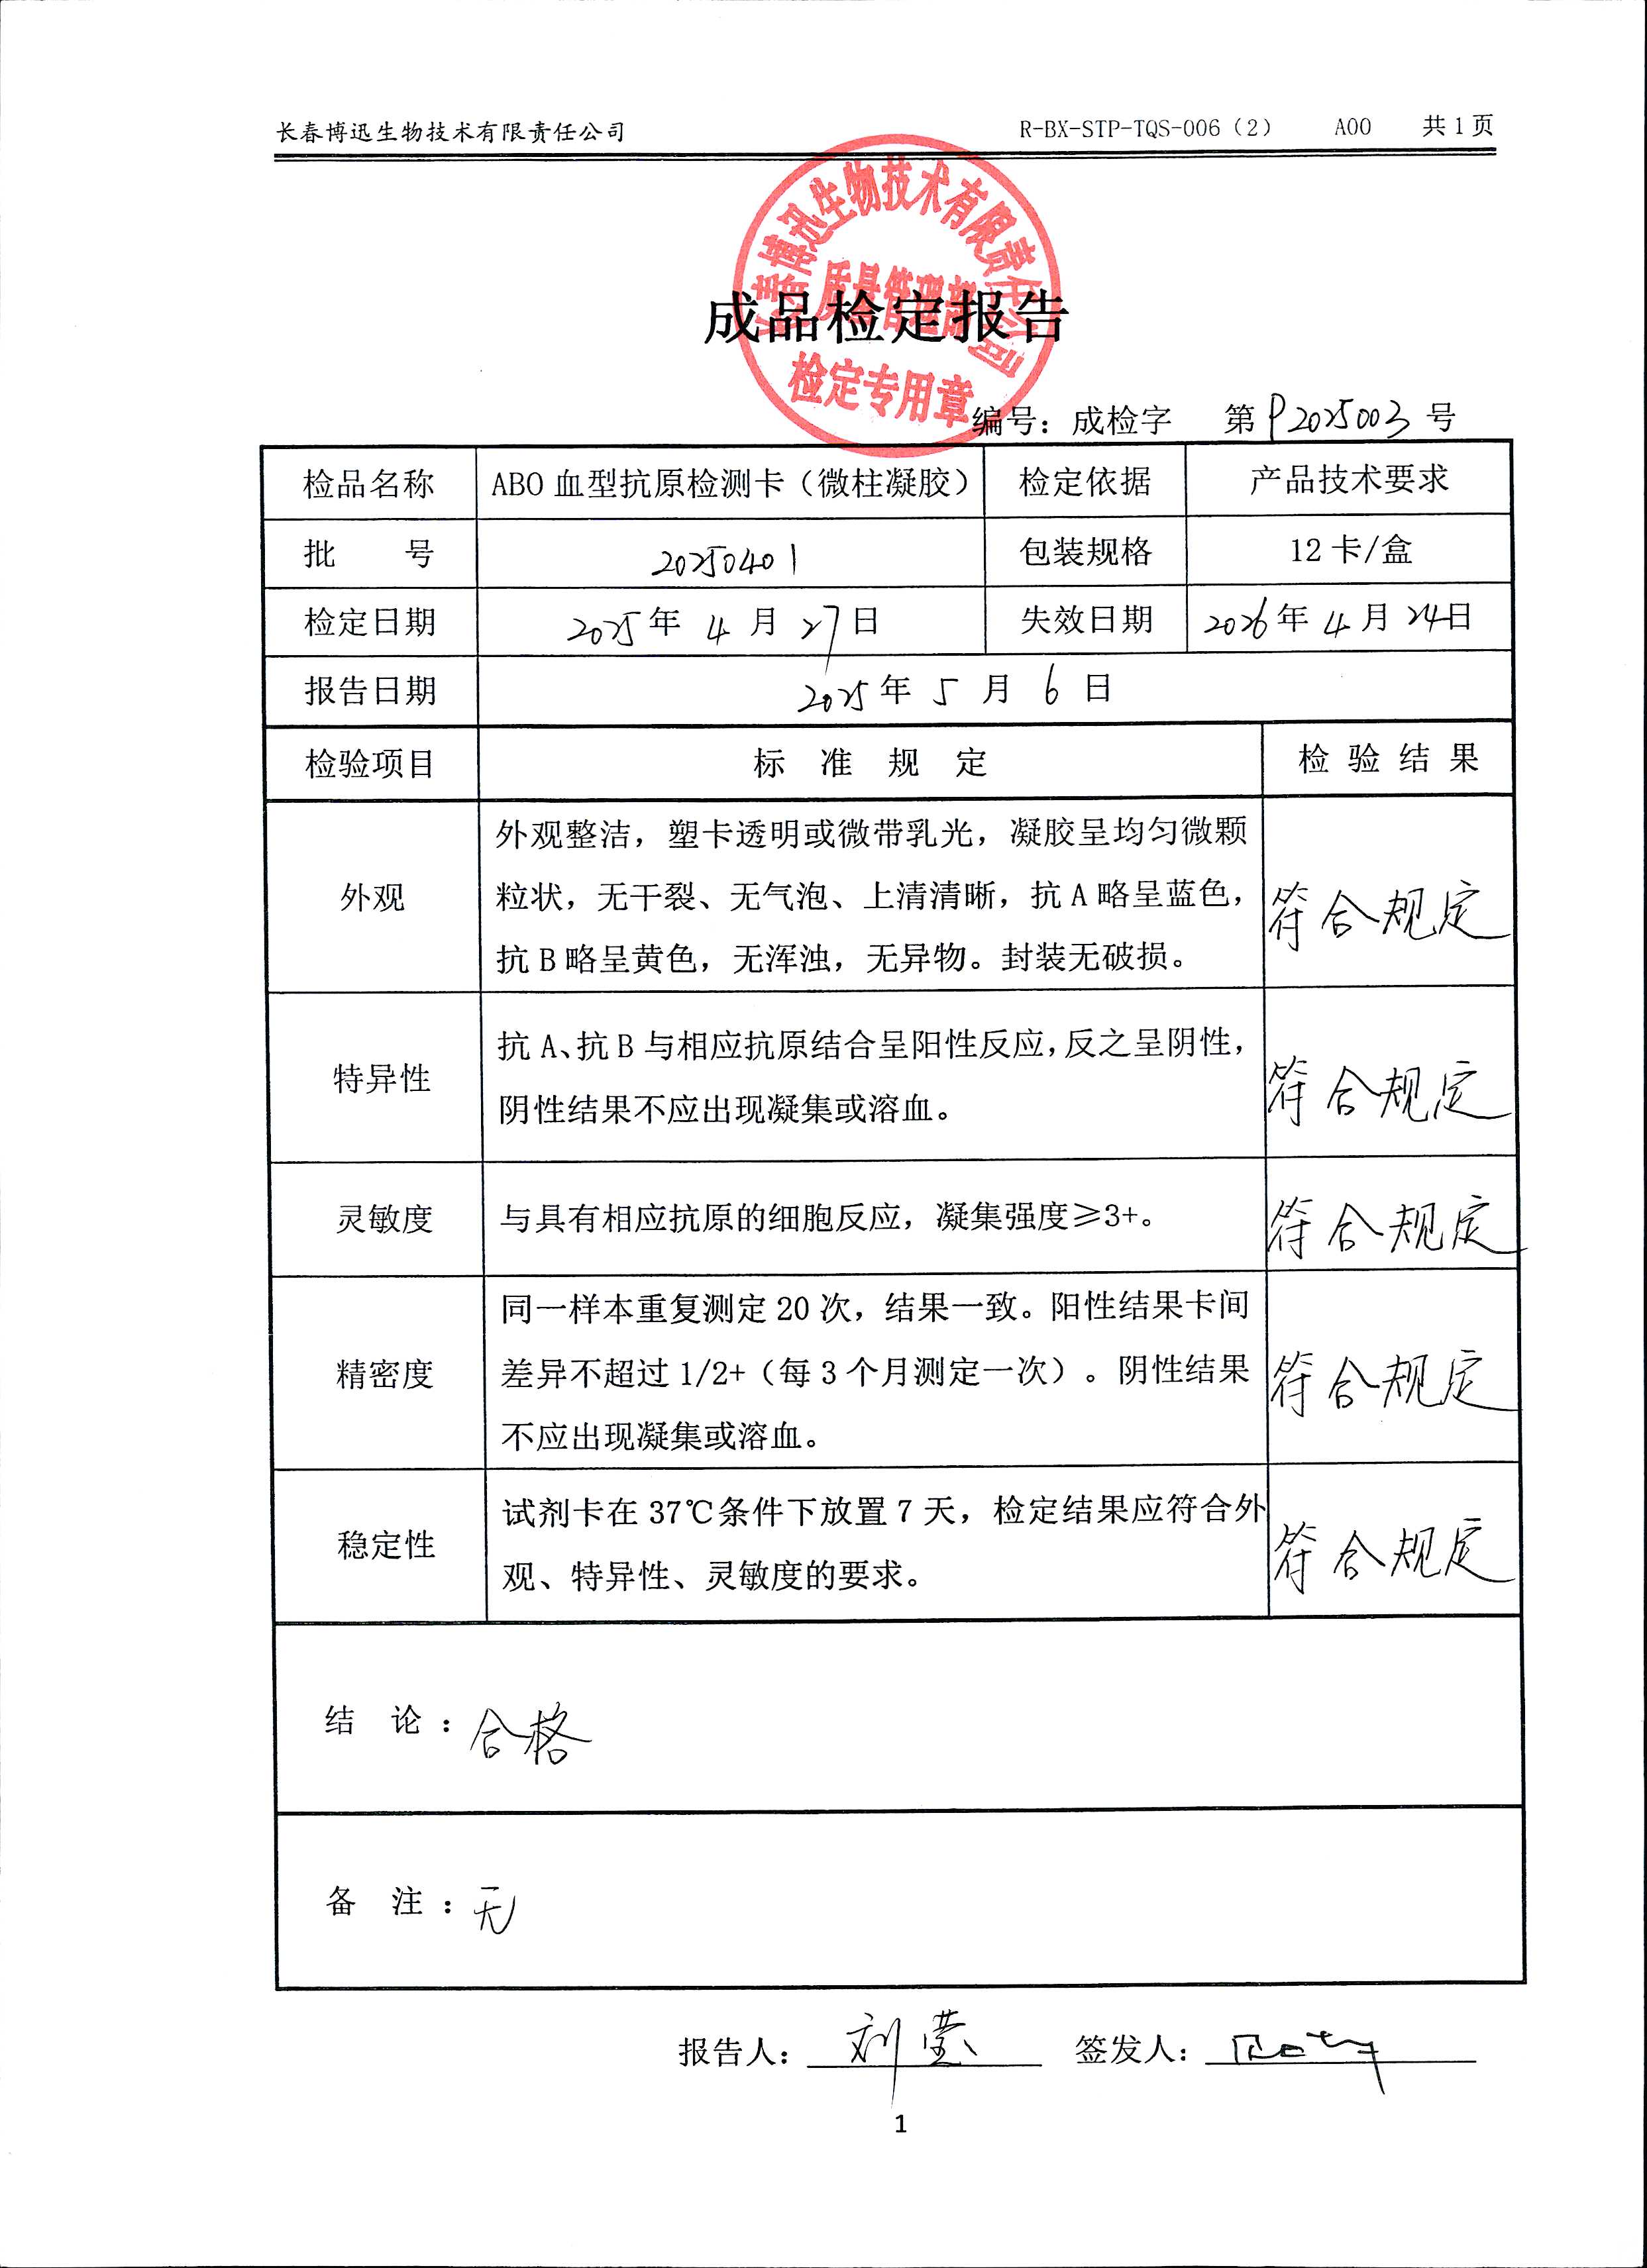 长春博迅生物技术有限责任公司 R-BX-STP-TQS-006（2） A00 共1页
长春博迅生物技术有限责任公司
质量管理部
检定专用章
成品检定报告
编号：成检字 第P2025003号
检品名称 ABO血型抗原检测卡（微柱凝胶） 检定依据 产品技术要求
批 号 20250401 包装规格 12卡/盒
检定日期 2025年4月27日 失效日期 2026年4月24日
报告日期 2025年5月6日
检验项目 标 准 规 定 检 验 结 果
外观 外观整洁，塑卡透明或微带乳光，凝胶呈均匀微颗
粒状，无干裂、无气泡、上清清晰，抗A略呈蓝色，
抗B略呈黄色，无浑浊，无异物。封装无破损。
符合规定
特异性 抗A、抗B与相应抗原结合呈阳性反应，反之呈阴性，
阴性结果不应出现凝集或溶血。
符合规定
灵敏度 与具有相应抗原的细胞反应，凝集强度≥3+。 符合规定
精密度 同一样本重复测定20次，结果一致。阳性结果卡间
差异不超过1/2+（每3个月测定一次）。阴性结果
不应出现凝集或溶血。
符合规定
稳定性 试剂卡在37℃条件下放置7天，检定结果应符合外
观、特异性、灵敏度的要求。
符合规定
结 论：合格
备 注：无
报告人：刘莹 签发人：
1